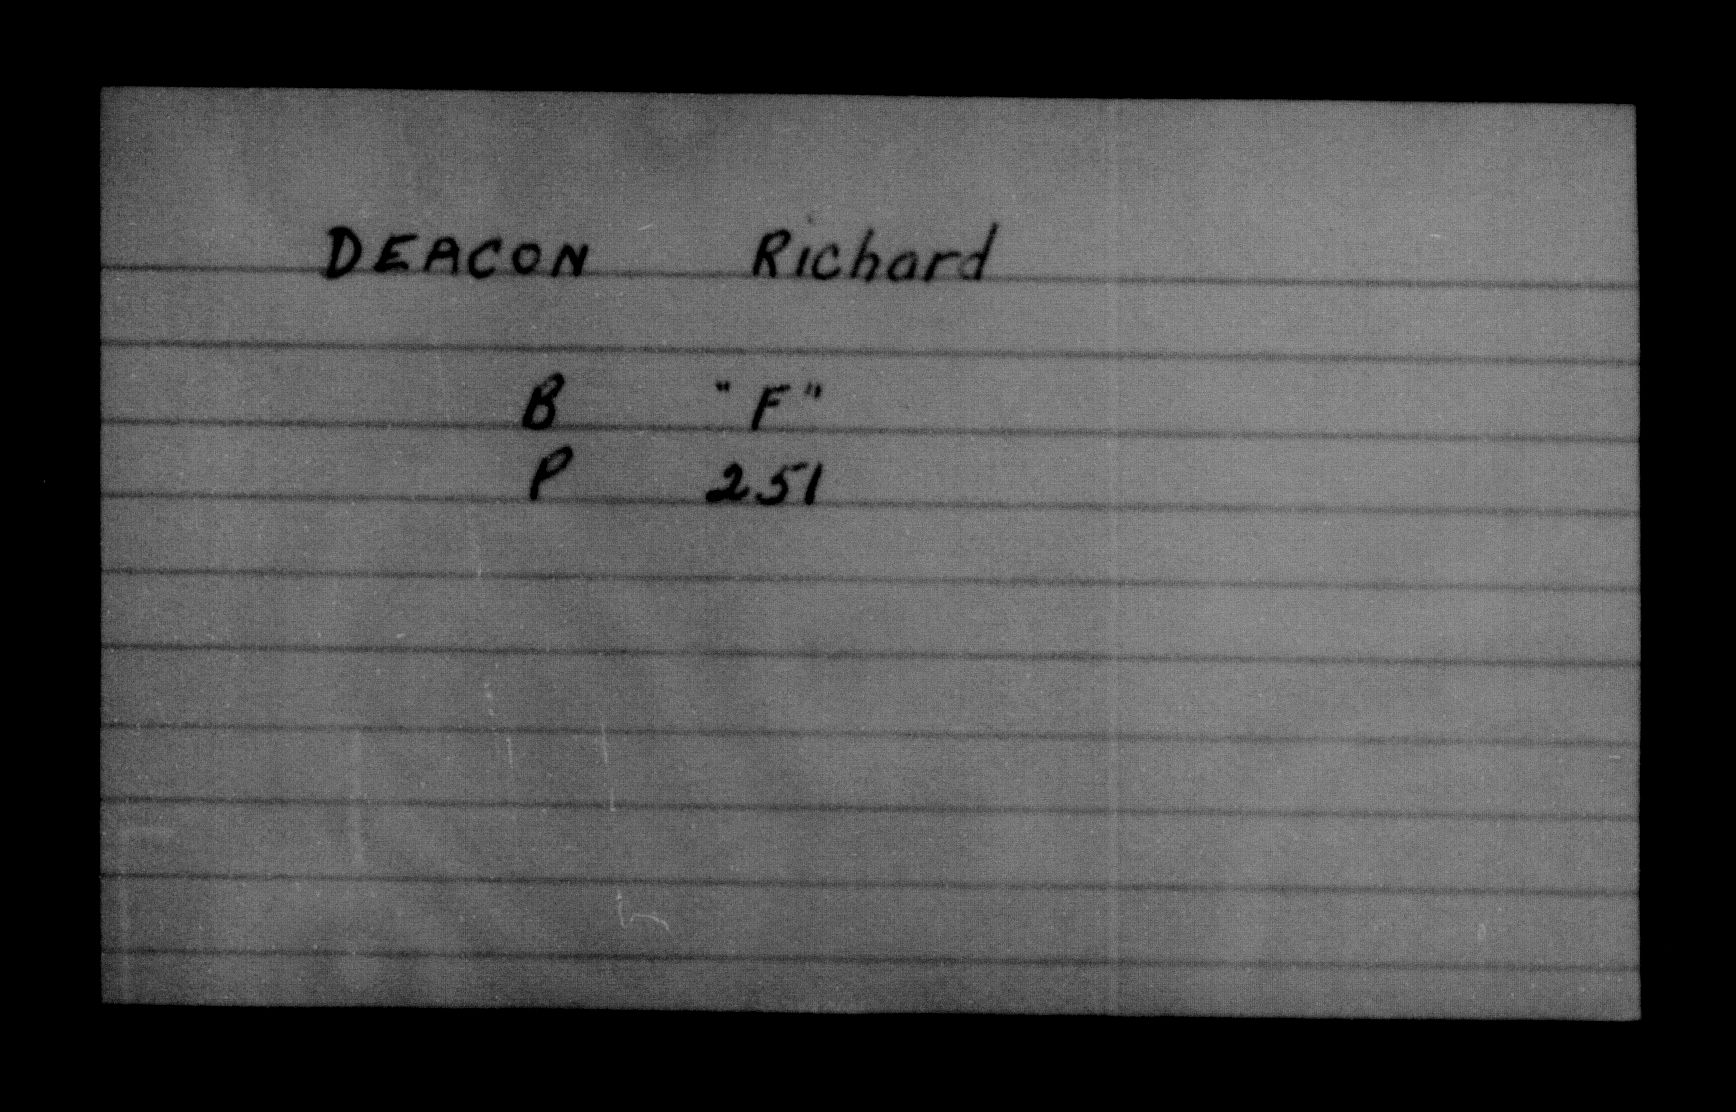 DEACON Richard
B "F"
P 251